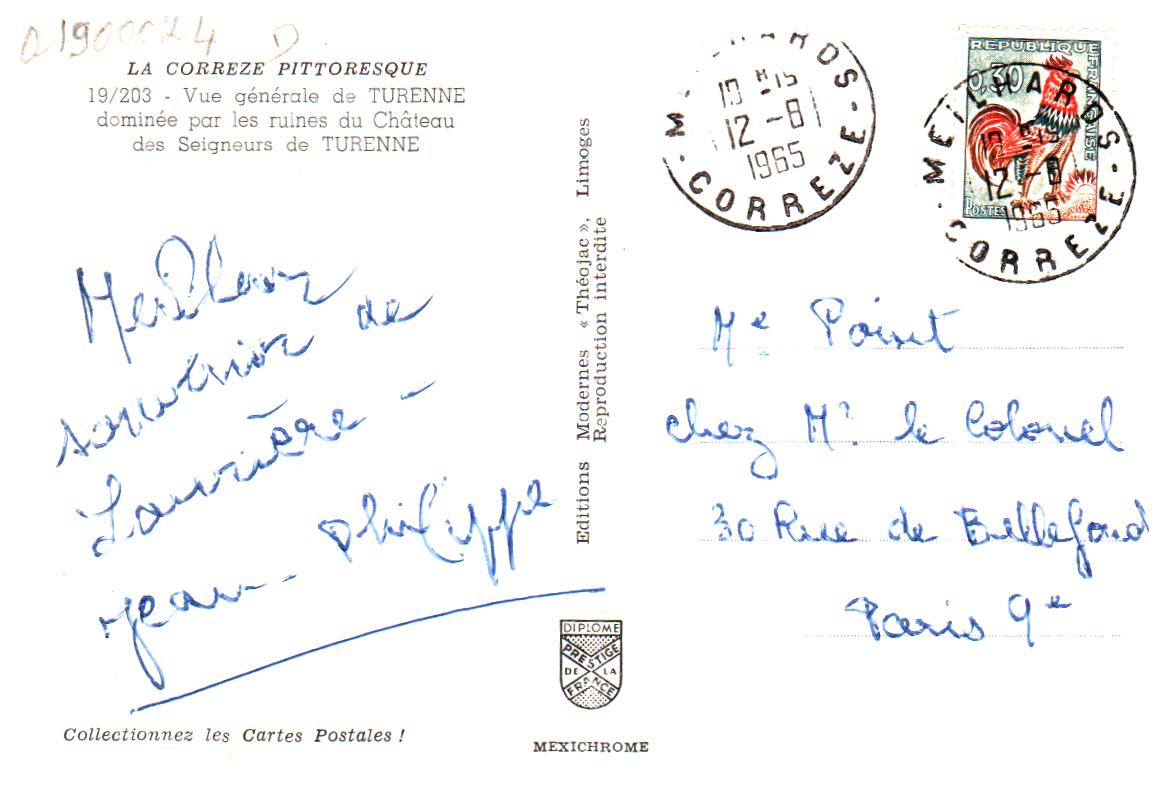 01900024 D
LA CORREZE PITTORESQUE
19/203 - Vue générale de TURENNE
dominée par les ruines du Château
des Seigneurs de TURENNE
Meilleur
souvenir de
jean-philippe
Collectionnez les Cartes Postales !
Editions Modernes « Théojac », Limoges
Reproduction interdite
DIPLOME
PRESTIGE
DE LA
FRANCE
MEXICHROME
12 - 8
1965
CORREZE
REPUBLIQUE FRANÇAISE
0,30
POSTES
MEILHARDS
12 - 8
1965
CORREZE
Me Point
chez Mr le Colonel
30 Rue de Bellefond
Paris 9e